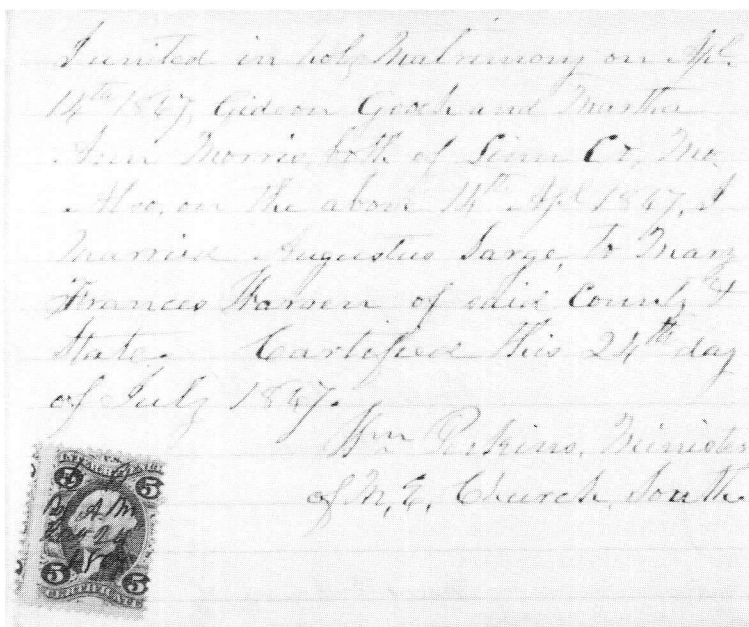 I united in holy Matrimony on Apl.
14th 1867, Gideon Gooch and Martha
Ann Morris, both of Linn Co, Mo.
Also, on the above 14th Apl 1867, I
Married Augustus Sarge, to Mary
Frances Warren of said County &
State. Certified this 24th day
of July 1867.
Wm Perkins, Minister
of M, E, Church, South.
5 5
5 5